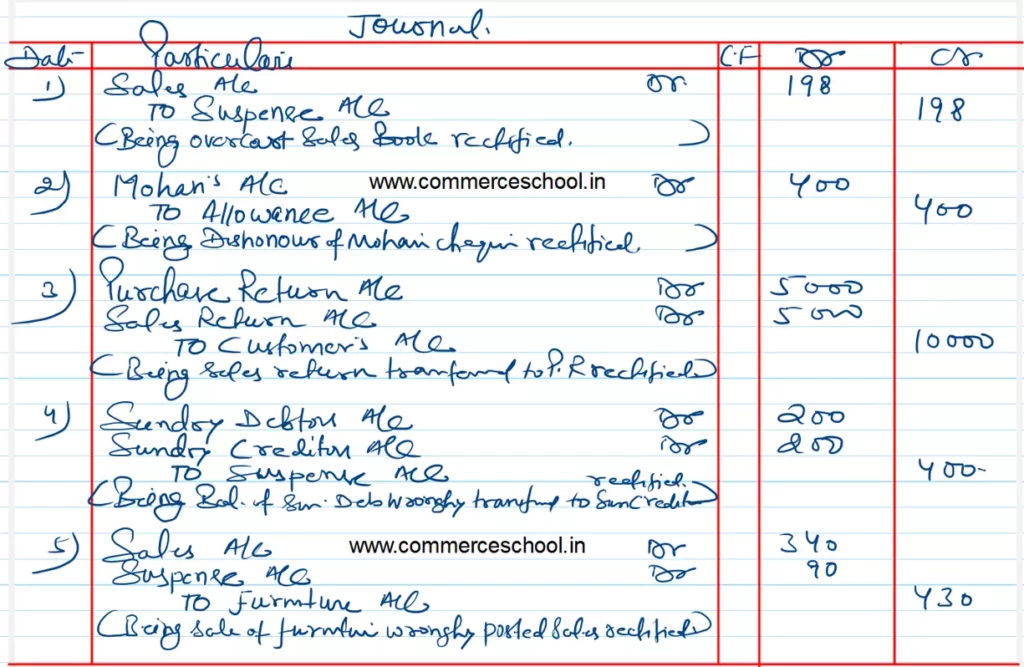 Journal.
Date Particulars C.F Dr Cr
1) Sales A/c Dr. 198
To Suspense A/c 198
(Being overcast Sales Book rectified. )
2) Mohan's A/C www.commerceschool.in Dr 400
To Allowance A/c 400
(Being Dishonour of Mohan cheque rectified. )
3) Purchase Return A/c Dr 5000
Sales Return A/C Dr 5000
To Customer's A/c 10000
(Being Sales return transferred to P.R rectified)
4) Sundry Debtors A/c Dr 200
Sundry Creditors A/c Dr 200
To Suspense A/c 400-
rectified.
(Being Bal. of Sun. Debt wrongly transfrd to Sun Credit)
5) Sales A/c www.commerceschool.in Dr 340
Suspense A/c Dr 90
To Furniture A/c 430
(Being sale of furniture wrongly posted Sales rectified)